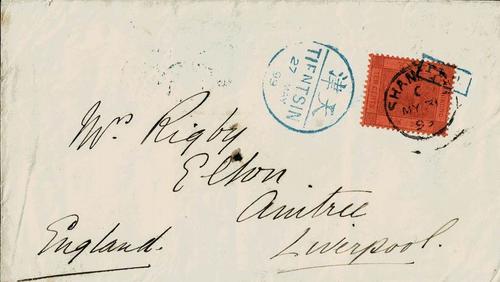 TIENTSIN
27 MAY
99
津天
SHANG
C
MY 31
99
Mrs Rigby
Elton
Aintree
Liverpool.
England.